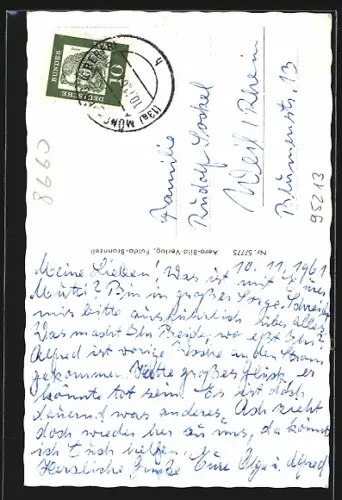 8660
DEUTSCHE BUNDES
10
(13a) MÜNCHBERG
h
Familie
Rudolf Sockel
Weil/Rhein
Blumenstr. 13
95213
Nr. 57775 Aero-Bild-Verlag, Fulda-Bronnzell
10. 11. 1961
Meine Lieben! Was ist mit
Mutti? Bin in großer Sorge. Schreibt
mir bitte ausführlich über alles.
Was macht Ihr Beide, wo eßt Ihr?
Alfred ist vorige Woche an den Strom
gekommen. Hatte großes Glück, er
könnte tot sein. Es ist doch
dauernd was anderes. Ach zieht
doch wieder her zu uns, da könnte
ich Euch helfen.
Herzliche Grüße Eure Olga u. Alfred